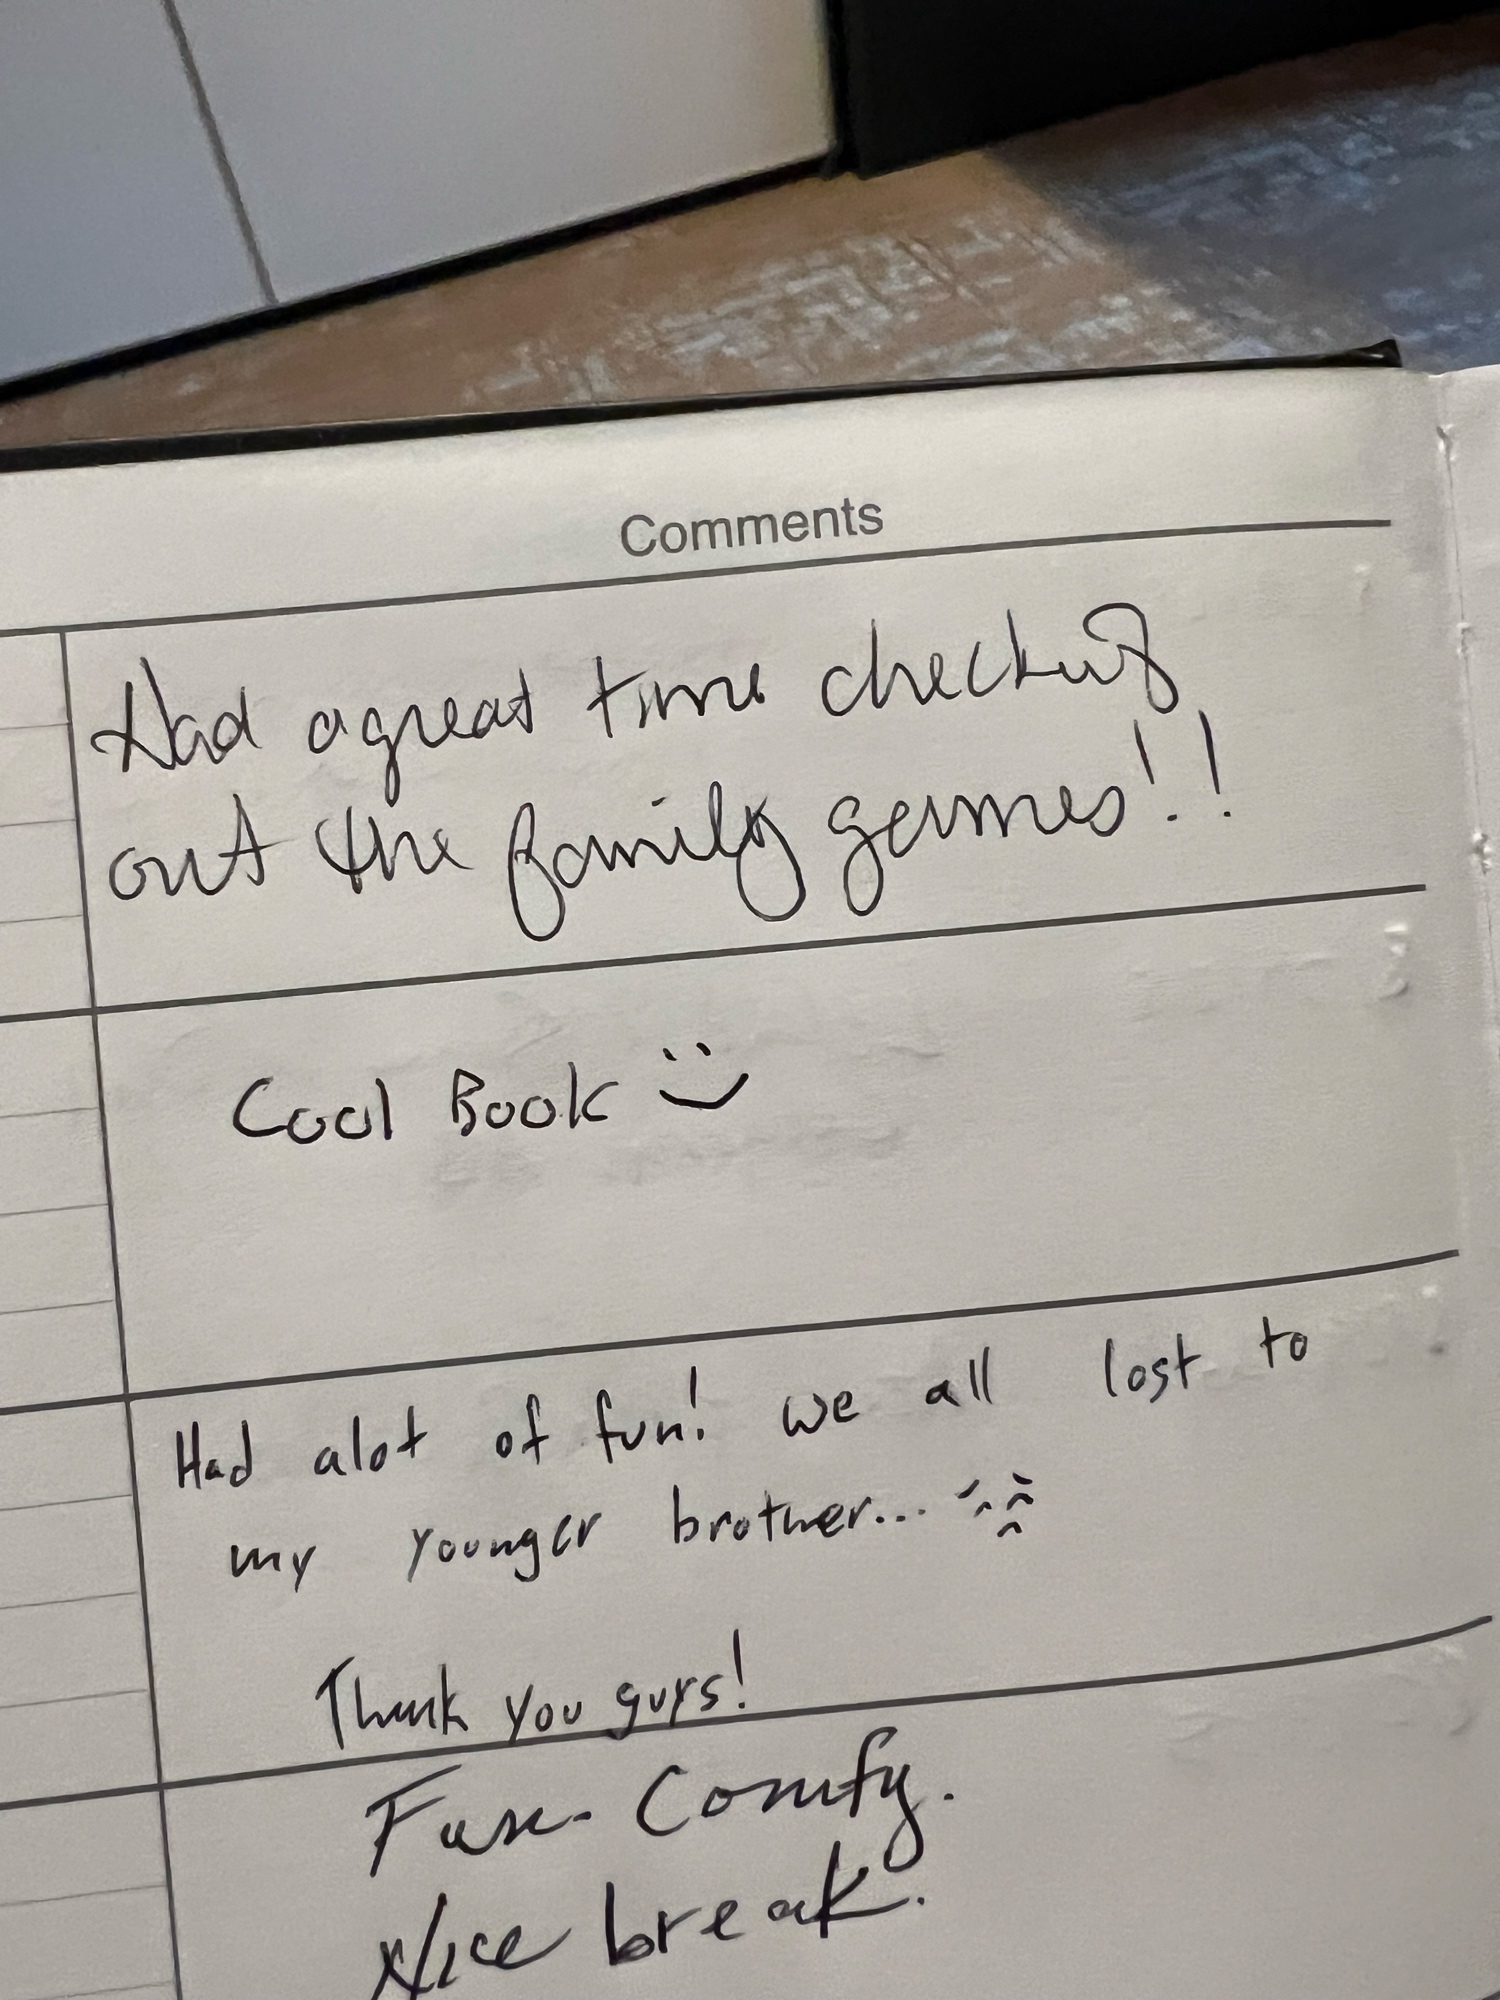 Comments
Had a great time checking
out the family games!!
Cool Book
Had alot of fun! we all lost to
my younger brother...
Thank you guys!
Fun. Comfy.
Nice break.